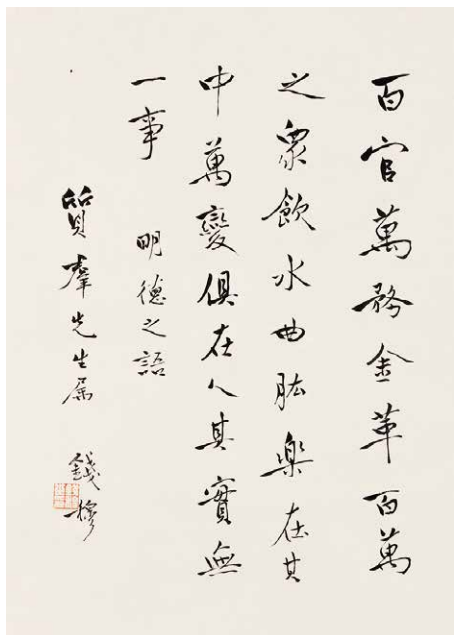 百官萬務金革百萬
之眾飲水曲肱樂在其
中萬變俱在人其實無
一事 明德之語
質群先生屬 錢穆